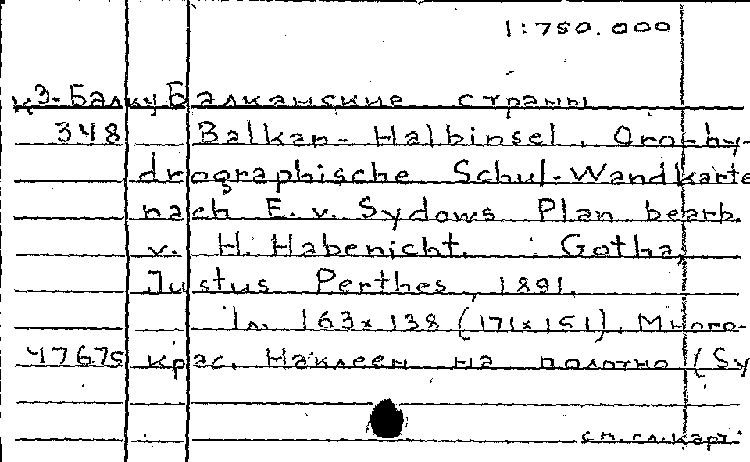 1:750.000
к3-Балку Балканские страны
348 Balkan-Halbinsel. Oro-hy-
drographische Schul-Wandkarte
nach E. v. Sydows Plan bearb.
v. H. Habenicht. Gotha,
Justus Perthes, 1891.
1 л. 163x138 (171x151). Много-
47675 крас. Наклеен на полотно (Sy
см. сл. карт.